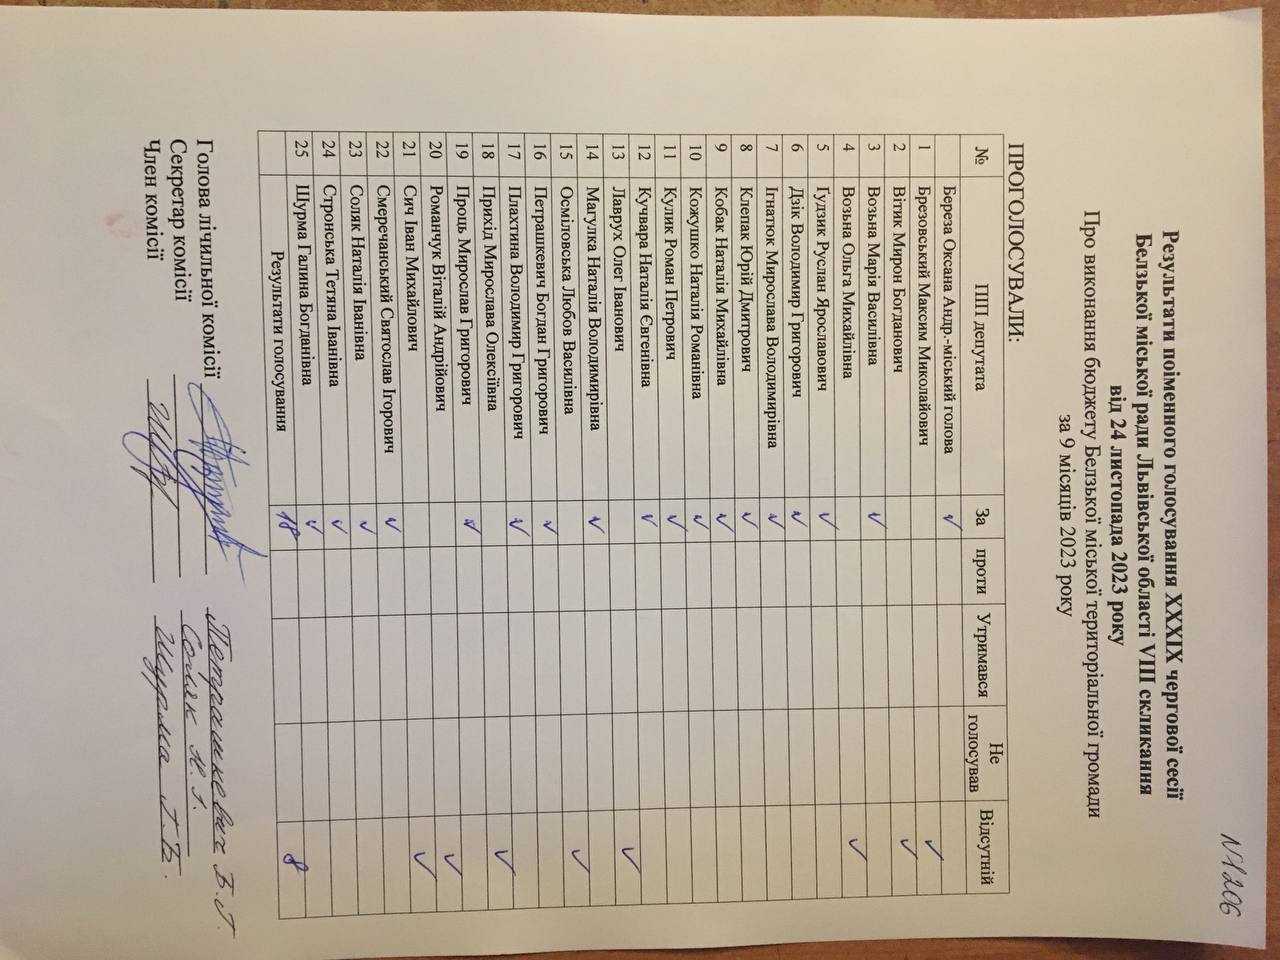 N1206
Результати поіменного голосування XXXIX чергової сесії
Белзької міської ради Львівської області VIII скликання
від 24 листопада 2023 року
Про виконання бюджету Белзької міської територіальної громади
за 9 місяців 2023 року
ПРОГОЛОСУВАЛИ:
№ ПІП депутата За проти Утримався Не голосував Відсутній
Береза Оксана Андр.-міський голова ✓
1 Брезовський Максим Миколайович ✓
2 Вітик Мирон Богданович ✓
3 Возьна Марія Василівна ✓
4 Возьна Ольга Михайлівна ✓
5 Гудзик Руслан Ярославович ✓
6 Дзік Володимир Григорович ✓
7 Ігнатюк Мирослава Володимирівна ✓
8 Клепак Юрій Дмитрович ✓
9 Кобак Наталія Михайлівна ✓
10 Кожушко Наталія Романівна ✓
11 Кулик Роман Петрович ✓
12 Кучвара Наталія Євгенівна ✓
13 Лаврух Олег Іванович ✓
14 Магулка Наталія Володимирівна ✓
15 Осміловська Любов Василівна ✓
16 Петрашкевич Богдан Григорович ✓
17 Плахтина Володимир Григорович ✓
18 Прихід Мирослава Олексіївна ✓
19 Проць Мирослав Григорович ✓
20 Романчук Віталій Андрійович ✓
21 Сич Іван Михайлович ✓
22 Смеречанський Святослав Ігорович ✓
23 Соляк Наталія Іванівна ✓
24 Стронська Тетяна Іванівна ✓
25 Щурма Галина Богданівна ✓
Результати голосування 18 8
Голова лічильної комісії Петрашкевич Б.Г.
Секретар комісії Соляк Н.І.
Член комісії Щурма Г.Б.